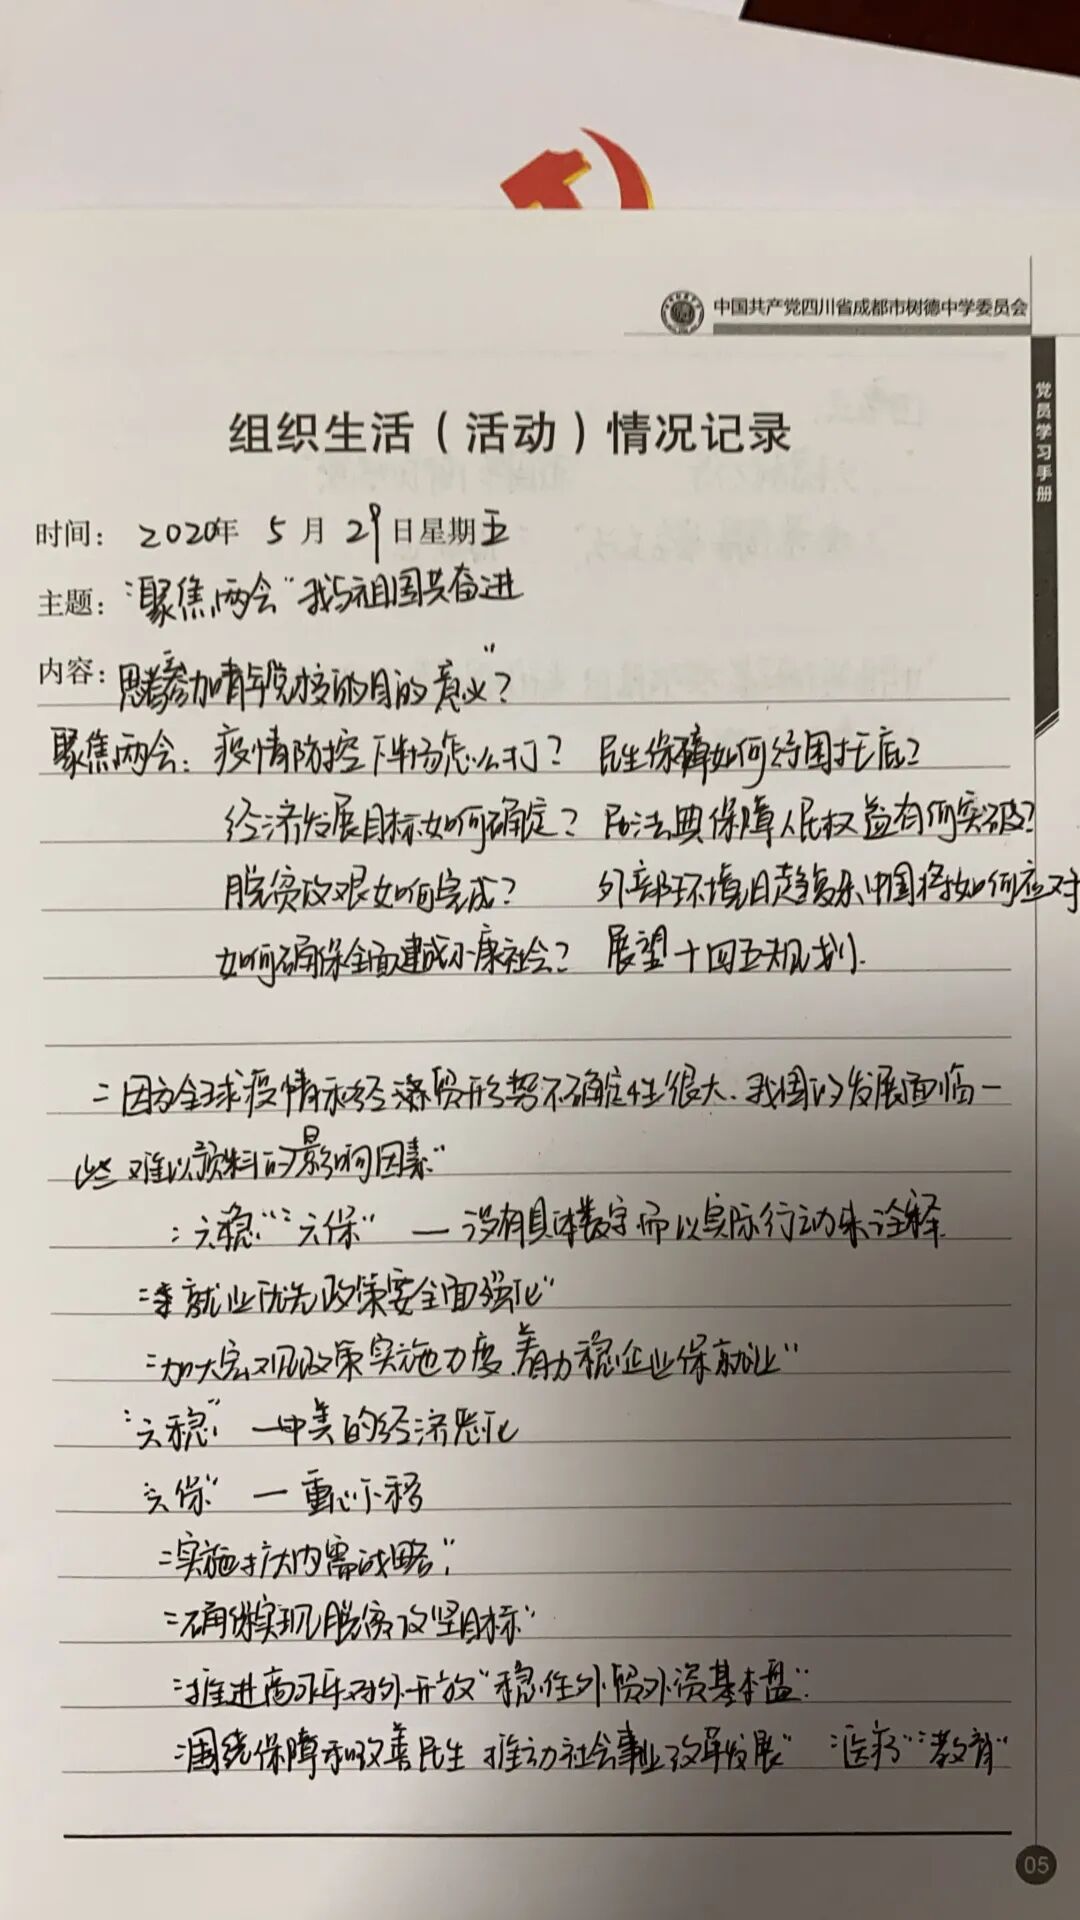 中国共产党四川省成都市树德中学委员会
党员学习手册
组织生活（活动）情况记录
时间： 2020年 5 月 29 日星期五
主题：“聚焦两会”我与祖国共奋进
内容：思考参加青年党校的目的意义”？
聚焦两会：疫情防控下半场怎么打？ 民生保障如何兜围托底？
经济发展目标如何确定？ 民法典保障人民权益有何突破？
脱贫攻艰如何完成？ 外部环境日趋复杂中国将如何应对
如何确保全面建成小康社会？ 展望十四五规划.
“因为全球疫情和经济贸形势不确定性很大.我国的发展面临一
些难以预料的影响因素”
“六稳”“六保” — 没有具体数字而以实际行动来诠释.
“就业优先政策要全面强化”
“加大宏观政策实施力度.着力稳企业保就业”
“六稳” — 中美的经济恶化
“六保” — 重心下移
“实施扩大内需战略”
“确保实现脱贫攻坚目标”
“推进高水平对外开放”稳住外贸外资基本盘”
“围绕保障和改善民生 推动社会事业改革发展” “医疗”“教育”
05